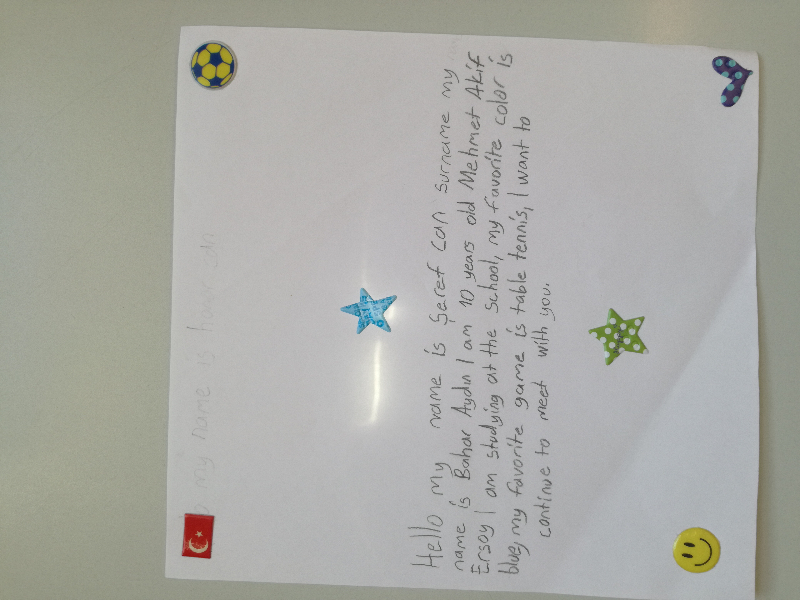 my name is
Hello my name is Şeref can surname my
name is Bahar Aydın I am 10 years old Mehmet Akif
Ersoy I am studying at the School, my favorite color is
blue, my favorite game is table tennis, I want to
continue to meet with you.